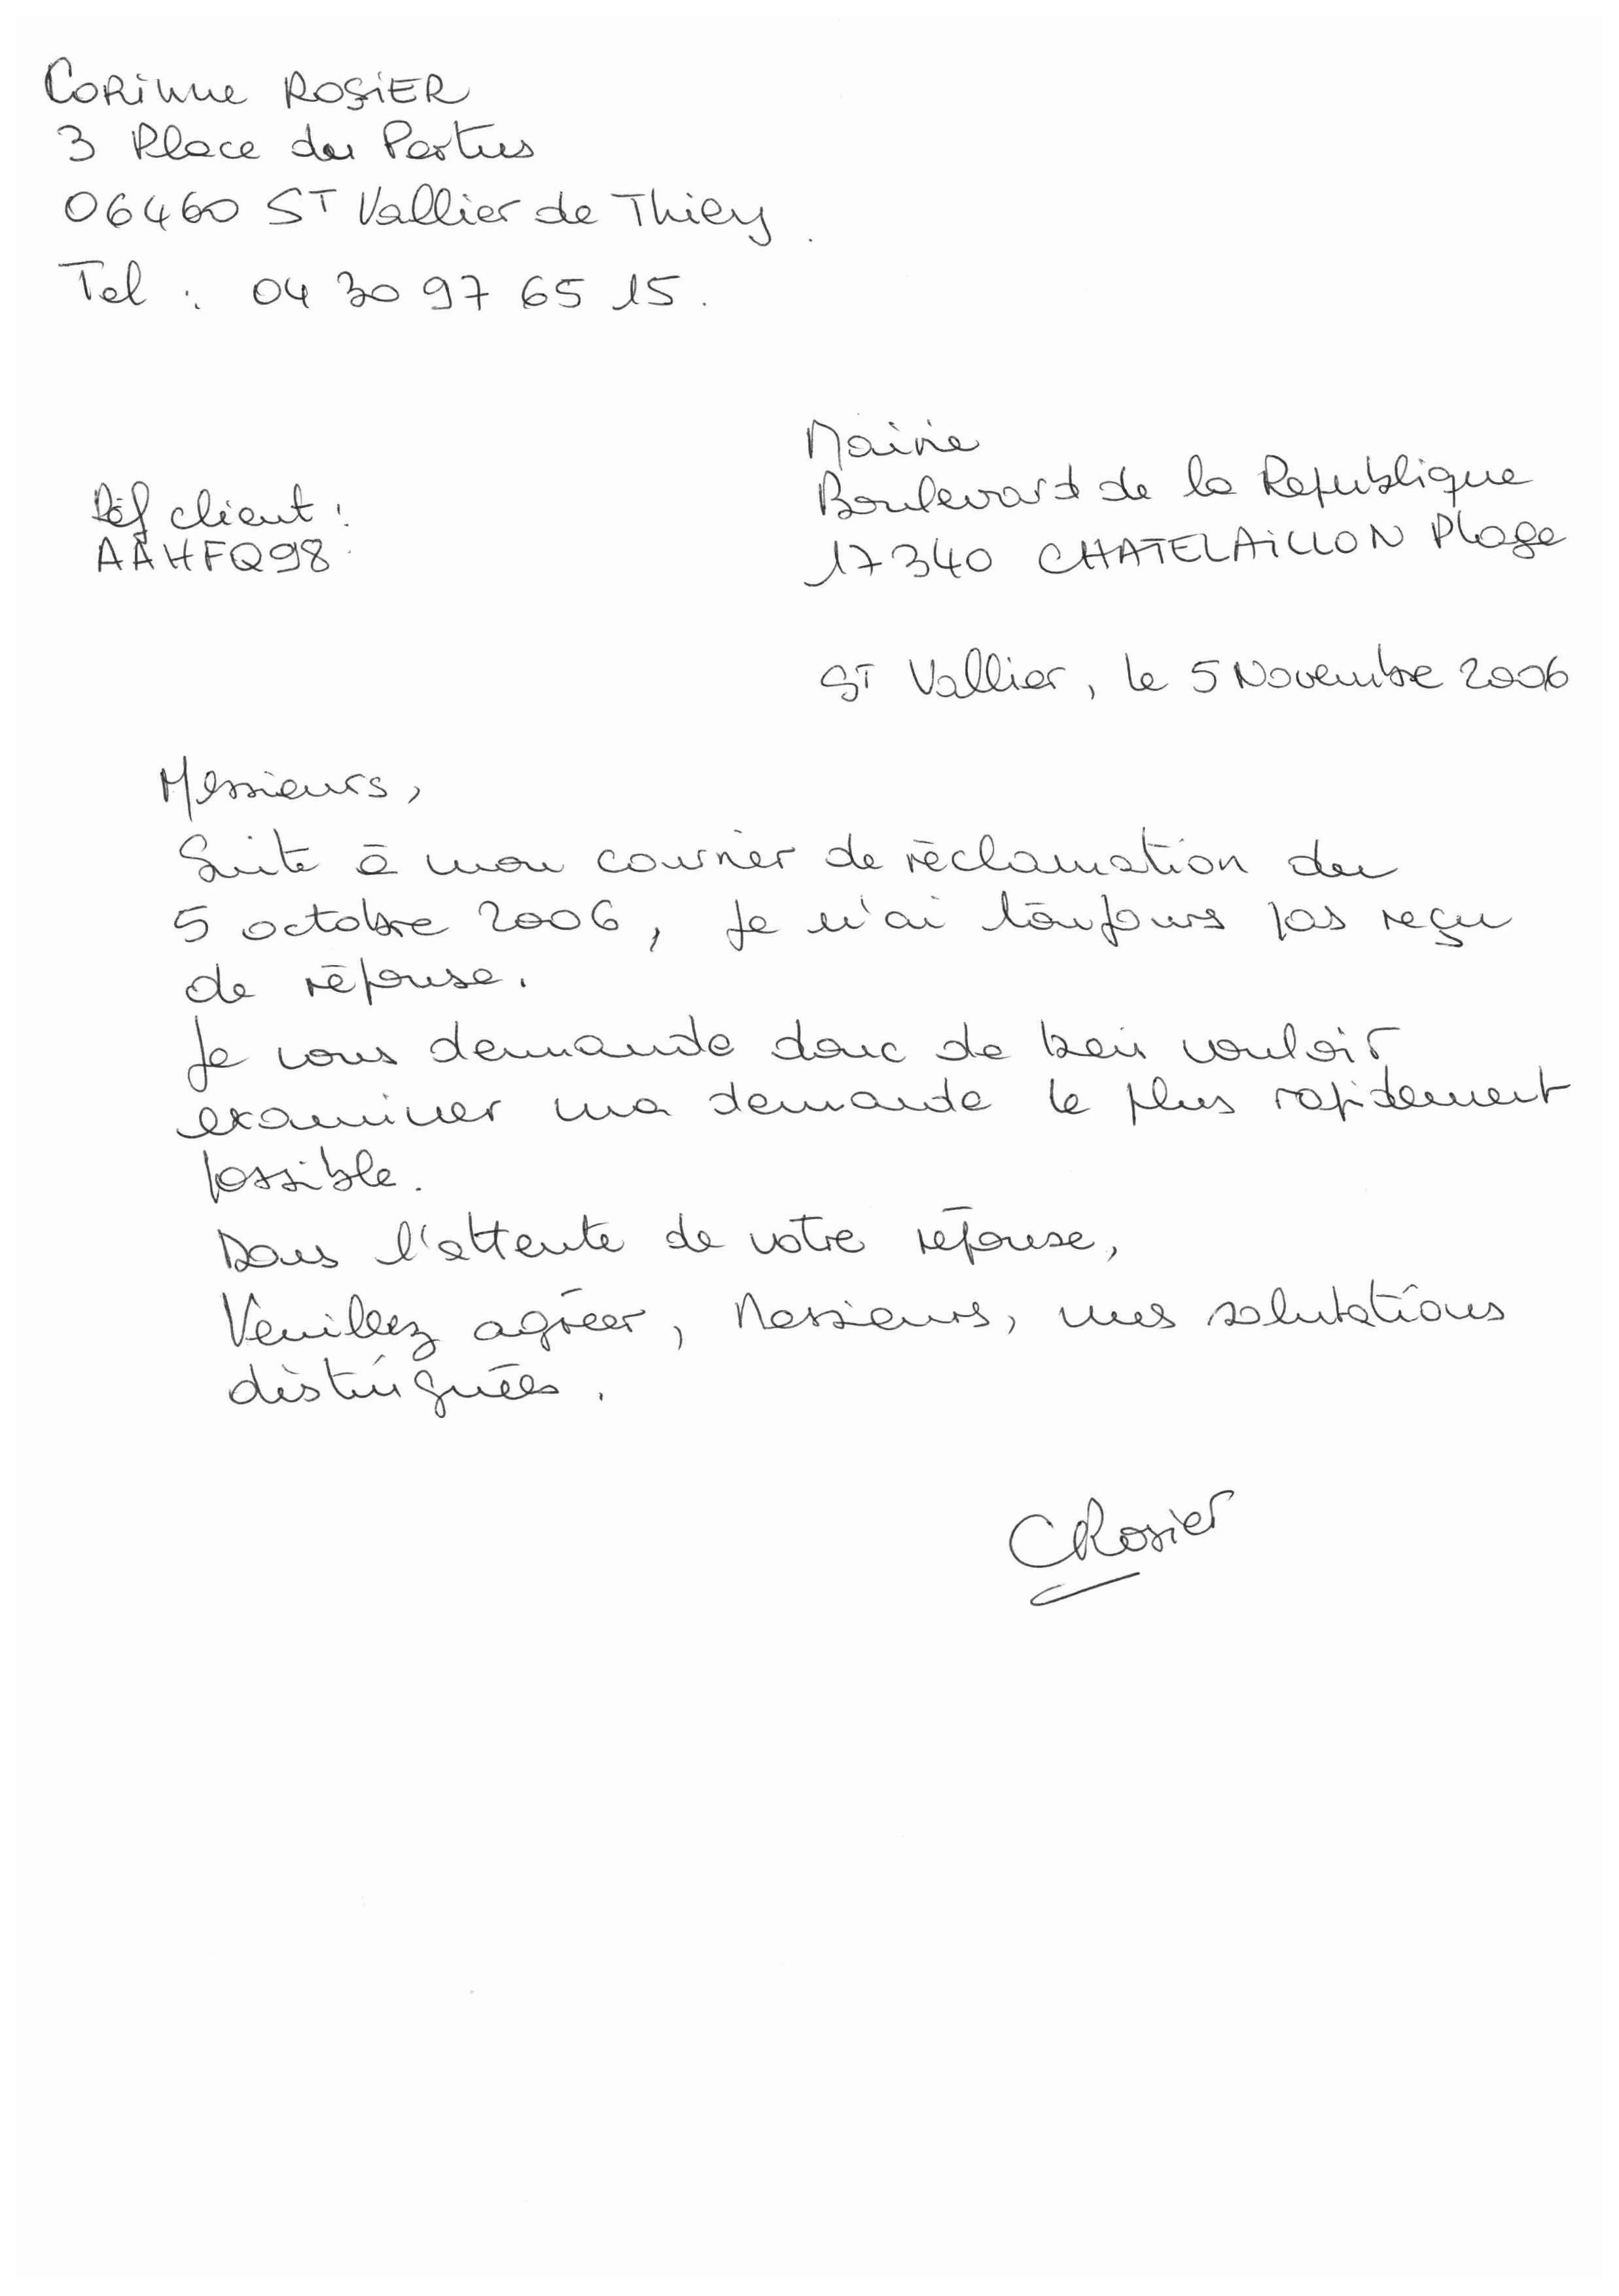 Corinne ROSIER
3 Place du Pertus
06460 ST Vallier de Thiey.
Tel : 04 30 97 65 15.
Mairie
Boulevard de la Republique
17340 CHATELAILLON Plage
Réf client :
AAHFQ98
ST Vallier, le 5 Novembre 2006
Messieurs,
Suite à mon courrier de réclamation du
5 octobre 2006, je n'ai toujours pas reçu
de réponse.
Je vous demande donc de bien vouloir
examiner ma demande le plus rapidement
possible.
Dans l'attente de votre réponse,
Veuillez agréer, Messieurs, mes salutations
distinguées.
CRosier